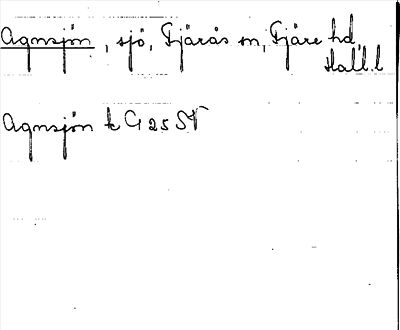 Agnsjön, sjö, Fjärås sn, Fjäre hd,
Hall. l
Agnsjön k G 25 SV